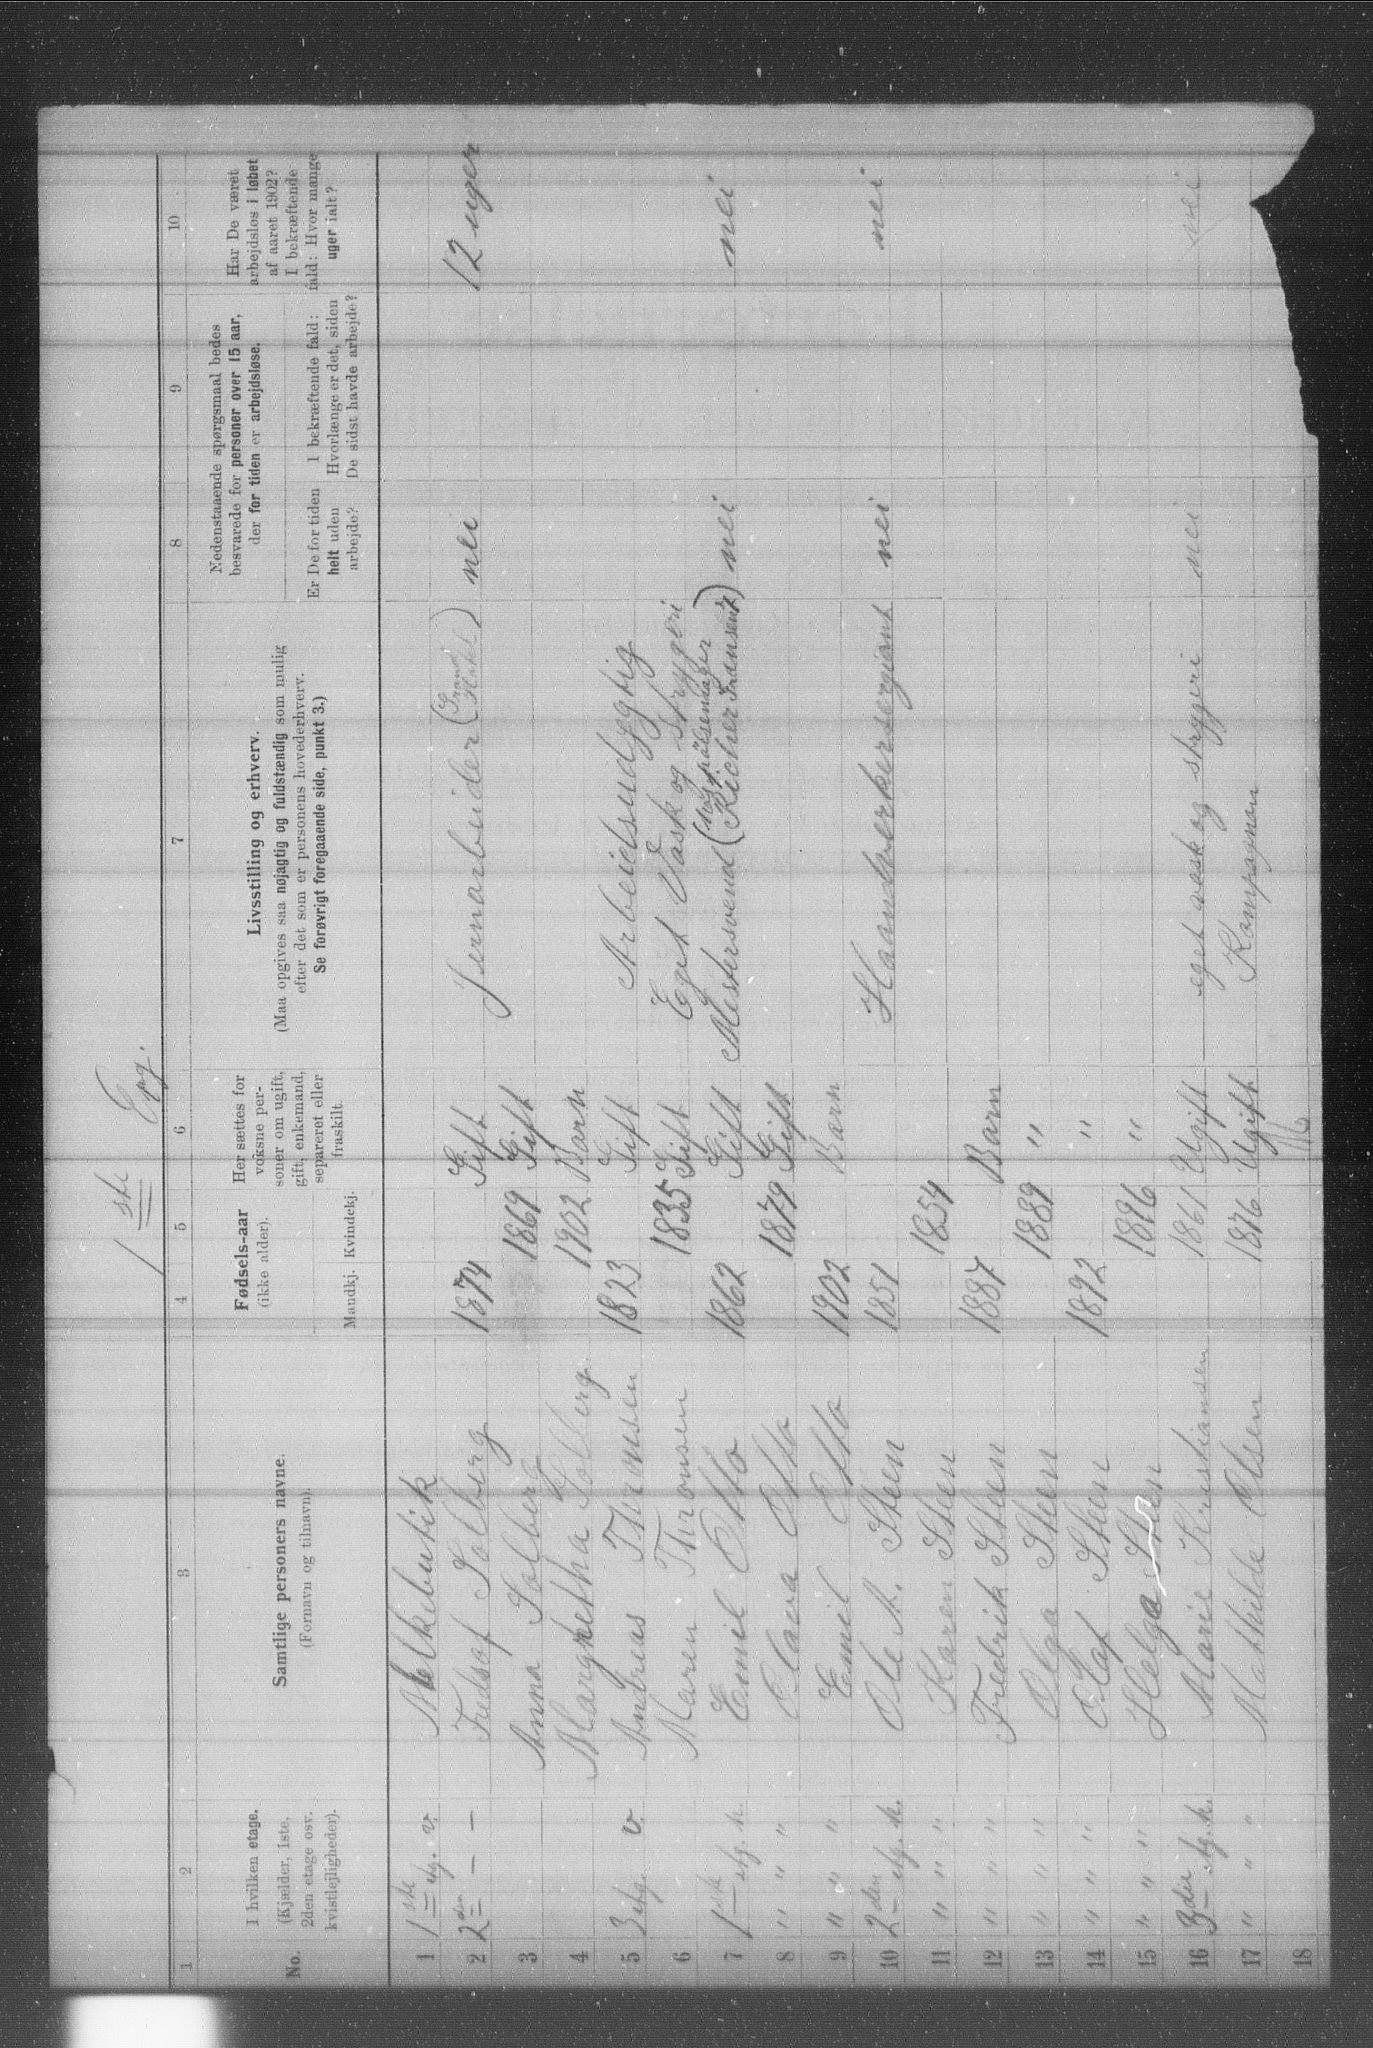 1ste Opg.
1 2 3 4 5 6 7 8 9 10
No.
I hvilken etage.
(Kjælder, 1ste,
2den etage osv.
kvistlejligheder).
Samtlige personers navne.
(Fornavn og tilnavn).
Fødsels-aar
(ikke alder).
Mandkj. Kvindekj.
Her sættes for
voksne per-
soner om ugift,
gift, enkemand,
separeret eller
fraskilt.
Livsstilling og erhverv.
(Maa opgives saa nøjagtig og fuldstændig som mulig
efter det som er personens hovederhverv.
Se forøvrigt foregaaende side, punkt 3.)
Nedenstaaende spørgsmaal bedes
besvarede for personer over 15 aar,
der for tiden er arbejdsløse.
Er De for tiden
helt uden
arbejde?
I bekræftende fald:
Hvorlænge er det, siden
De sidst havde arbejde?
Har De været
arbejdsløs i løbet
af aaret 1902?
I bekræftende
fald: Hvor mange
uger ialt?
1 1ste etg. v. Melkebutik
2 2den - - Fredsaf Solberg 1874 Gift Jernarbeider nei 12 uger
3 Anna Solberg 1869 Gift
4 Margretha Solberg 1902 Barn
5 3 etg. v. Andreas Thronsen 1823 Gift Arbeidsudygtig
6 Maren Thronsen 1835 Gift Eget Vask og Strygeri
7 1ste etg. h. Emil Otto 1862 Gift Mestersvend nei nei
8 " " " Clara Otto 1879 Gift
9 " " " Emil Otto 1902 Barn
10 2den etg. h. Ole M. Steen 1851 Haandverkersergiant nei nei
11 " " " Karen Steen 1854
12 " " " Fredrik Steen 1887 Barn
13 " " " Olga Steen 1889 "
14 " " " Olaf Steen 1892 "
15 " " " Helga Steen 1896 "
16 3die etg. h. Marie Kristiansen 1861 Ugift eget vask og strygeri nei nei
17 " " " Mathilde Olsen 1876 Ugift Kompagnon
18 16